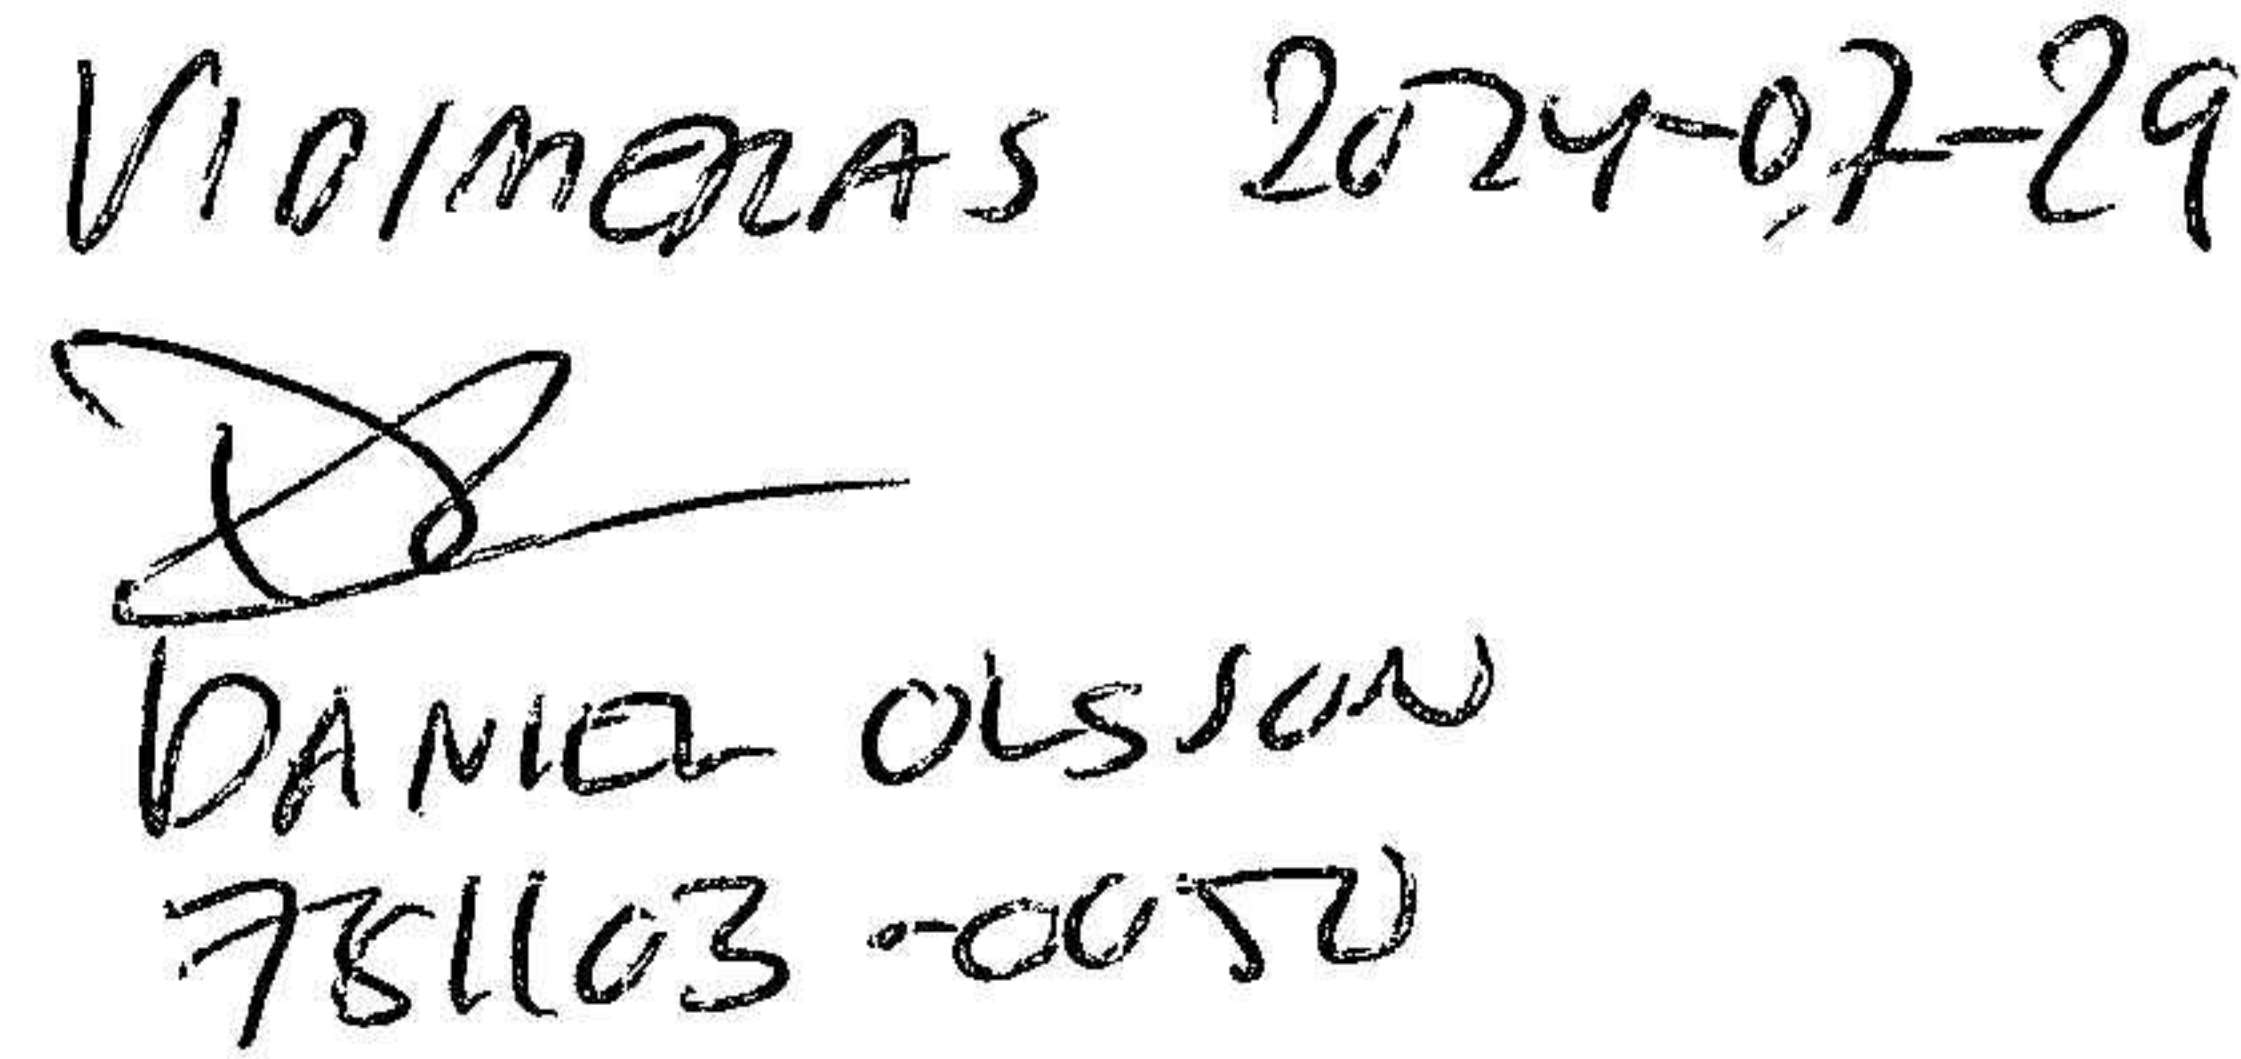 VIDIMERAS 2024-07-29
DANIEL OLSSON
781103-0050